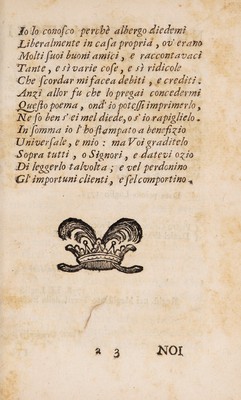 Io lo conoſco perchè albergo diedemi
Liberalmente in caſa propria, ov' erano
Molti ſuoi buoni amici, e raccontavaci
Tante, e sì varie coſe, e sì ridicole
Che ſcordar mi facea debiti, e crediti.
Anzi allor fu che lo pregai concedermi
Queſto poema, ond' io poteſſi imprimerlo,
Ne ſo ben s' ei mel diede, o s' io rapiglielo.
In ſomma io l' ho ſtampato a benefizio
Univerſale, e mio: ma Voi graditelo
Sopra tutti, o Signori, e datevi ozio
Di leggerlo talvolta; e vel perdonino
Gl' importuni clienti, e ſel comportino.
a 3 NOI